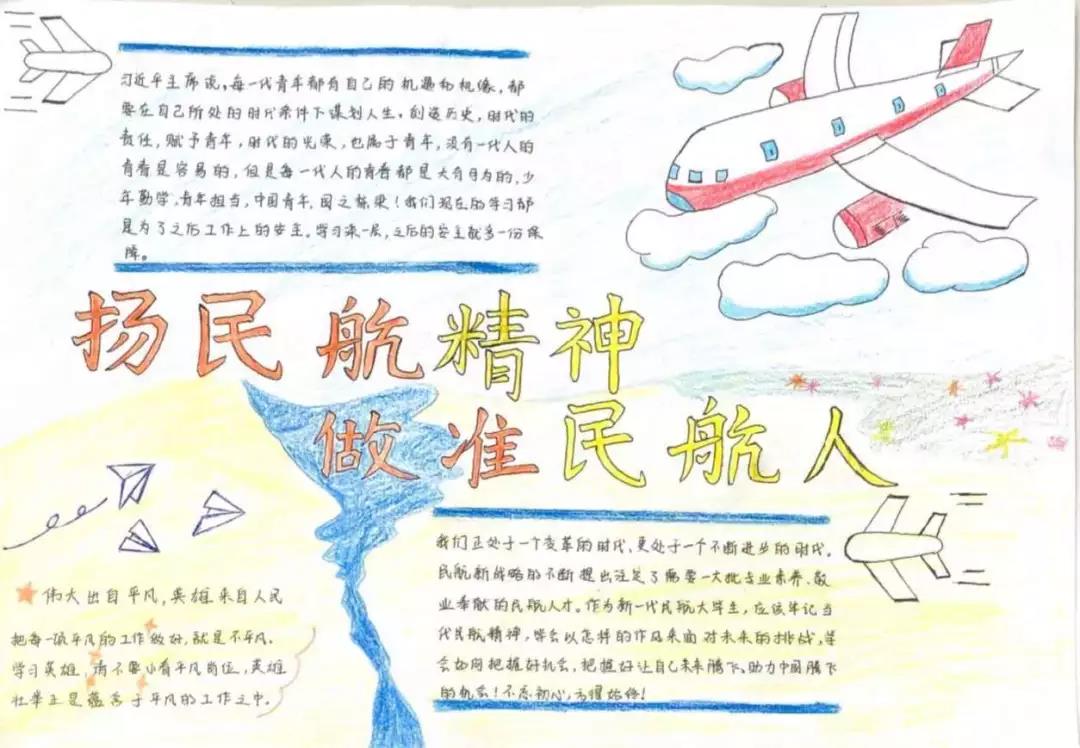 习近平主席说，每一代青年都有自己的机遇和机缘，都
要在自己所处的时代条件下谋划人生，创造历史，时代的
责任，赋予青年，时代的光荣，也属于青年，没有一代人的
青春是容易的，但是每一代人的青春都是大有可为的，少
年勤学，青年担当，中国青年，国之栋梁！我们现在的学习都
是为了之后工作上的安全。学习深一层，之后的安全就多一份保
障。
扬民航精神
做准民航人
我们正处于一个变革的时代，更处于一个不断进步的时代。
民航新战略的不断提出注定了需要一大批专业素养、敬
业奉献的民航人才。作为新一代民航大学生，应该牢记当
代民航精神，学会以怎样的作风来面对未来的挑战，学
会如何把握好机会，把握好让自己未来腾飞、助力中国腾飞
的机会！不忘初心，方得始终！
伟大出自平凡，英雄来自人民
把每一项平凡的工作做好，就是不平凡。
学习英雄，请不要小看平凡岗位，英雄
壮举正是蕴含于平凡的工作之中。